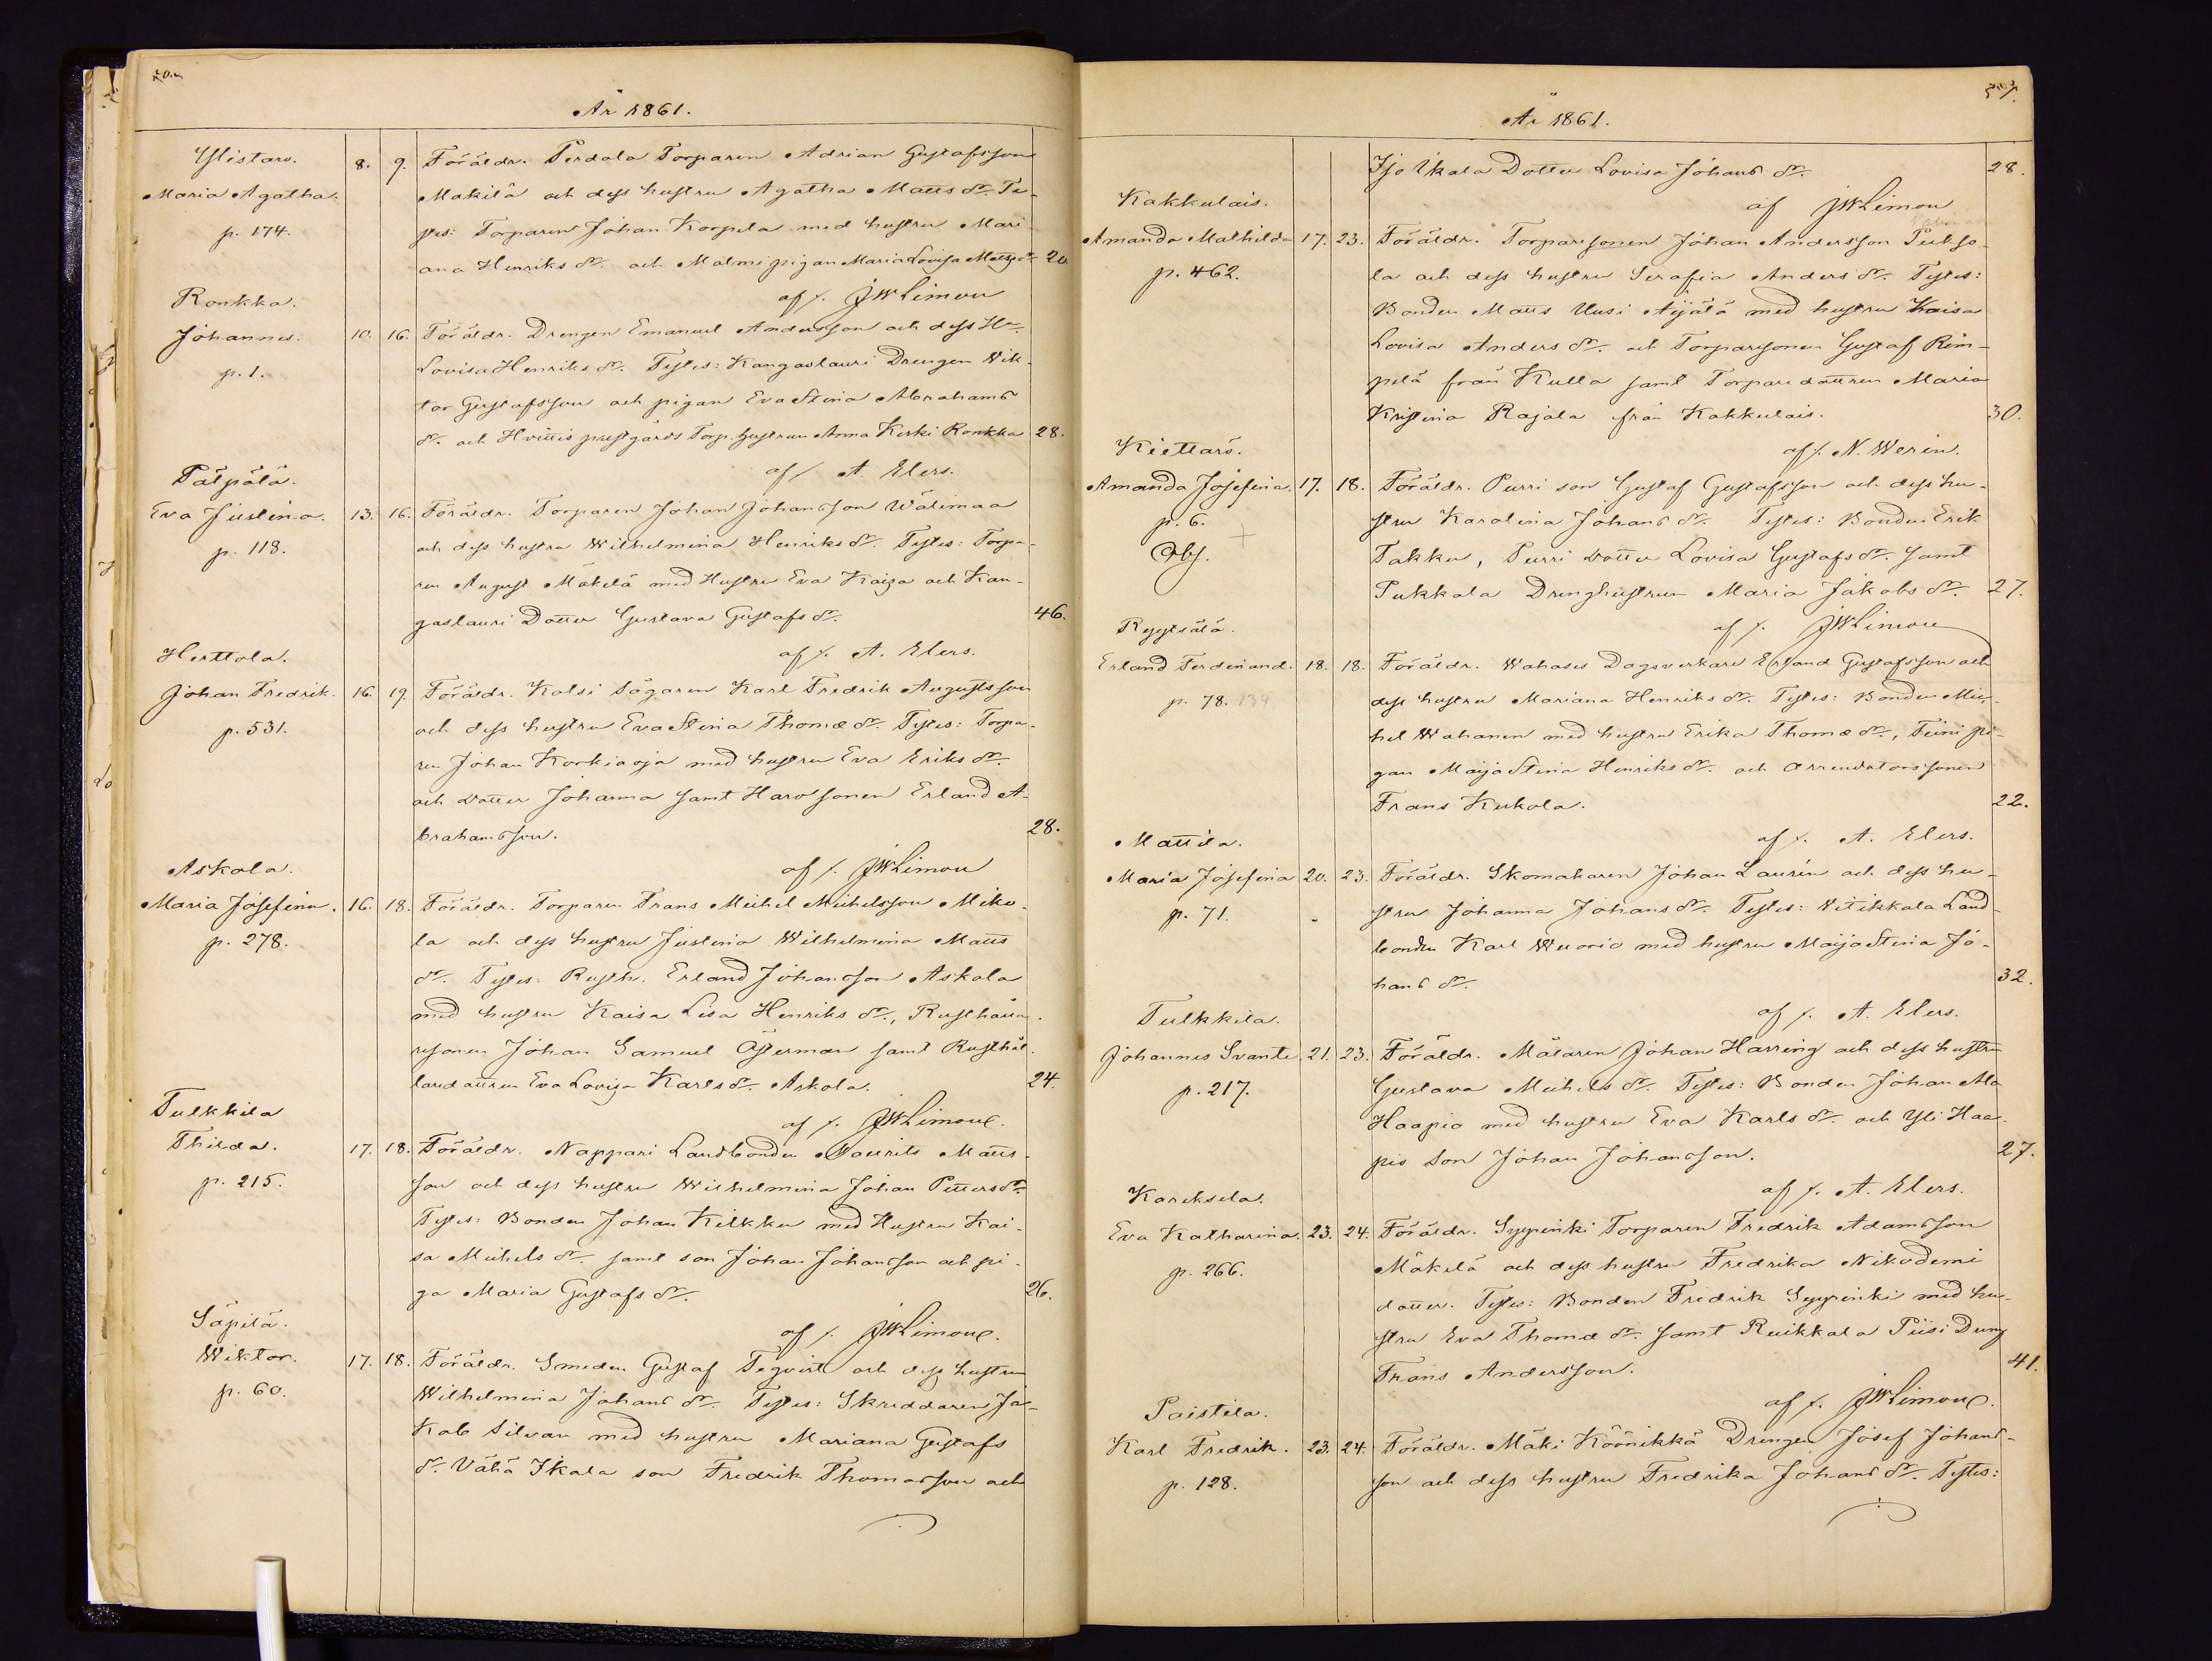 År 1861.
Ylistaro. 8. 9. Föräldr. Perdala Torparen Adrian Gustafsson
Maria Agatha. Makilä och dess hustru Agatha Matts dr. Te-
p. 174. stes: Torparen Johan Korpela med hustru Mari
ana Henriks dr. och Malmi pigan Maria Lovisa Matts dr. 20
Ronkka. af f. JWLimon
Johannes. 10. 16. Föräldr. Drengen Emanuel Andersson och dess H
p. 1. Lovisa Henriks dr. Testes: Kangaslauri Drengen Wik-
tor Gustafsson och pigan Eva Stina Abrahams
dr. och Hvittis prestgårds Torp. hustrun Anna Keski Ronkka 28.
Pälpälä. af f. A. Elers.
Eva Justina. 13. 16. Föräldr. Torparen Johan Johansson Wälimaa
p. 118. och dess hustru Wilhelmina Henriks dr. Testes: Torpa-
ren August Mäkelä med Hustru Eva Kaisa och Kan-
gaslauri Dotter Gustava Gustafs dr. 46.
Herttola. af f. A. Elers.
Johan Fredrik. 16. 19. Föräldr. Kalsi Sågaren Karl Fredrik Augustsson
p. 531. och dess hustru Eva Stina Thomæ dr. Testes: Torpa-
ren Johan Korkiaoja med hustru Eva Eriks dr.
och dotter Johanna samt Haro sonen Erland A-
brahamsson. 28.
Askola. af f. JWLimon
Maria Josefina. 16. 18. Föräldr. Torparen Frans Michel Michelsson Miko-
p. 278. la och dess hustru Justina Wilhelmina Matts
dr. Testes: Rusth. Erland Johansson Askola
med hustru Kaisa Lisa Henriks dr., Rusthålla-
resonen Johan Samuel Österman samt Rusthål-
laredottren Eva Lovisa Karls dr. Askola. 24.
Tulkkila af f. JWLimon.
Thilda. 17. 18. Föräldr. Nappari Landbonden Maurits Matts-
p. 215. son och dess hustru Wilhelmina Johan Petters dr.
Testes: Bonden Johan Kilkku med Hustru Kai-
sa Michels dr. samt son Johan Johansson och pi-
ga Maria Gustafs dr. 26.
Säpilä. af f. JWLimon.
Wiktor. 17. 18. Föräldr. Smeden Gustaf Tegvist och dess hustru
p. 60. Wilhelmina Johans dr. Testes: Skreddaren Ja-
kob Silvan med hustru Mariana Gustafs
dr. Vähä Ikala son Fredrik Thomasson och
57.
År 1861.
Iso Ikala Dotter Lovisa Johans dr. 28.
Kakkulais. af JWLimon
Amanda Mathilda 17. 23. Föräldr. Torparesonen Johan Andersson Putso-
p. 462. la och dess hustru Serafia Anders dr. Testes:
Bonden Matts Uusi Äijälä med hustru Kaisa
Lovisa Anders dr. och Torparesonen Gustaf Rim-
pilä från Kulla samt Torparedottren Maria
Kristina Rajala från Kakkulais. 30.
Kiettarö. af f. N. Werin.
Amanda Josefina. 17. 18. Föräldr. Purri son Gustaf Gustafsson och dess hu-
p. 6. stru Karolina Johans dr. Testes: Bonden Erik
Obs. Takku, Purri dotter Lovisa Gustafs dr. samt
Pukkala Drenghustrun Maria Jakobs dr. 27.
Ryytsälä. af f. JWLimon
Erland Ferdinand. 18. 18. Föräldr. Wahases Dagsverkare Erland Gustafsson och
p. 78. 134 dess hustru Mariana Henriks dr. Testes: Bonden Mic-
hel Wahanen med hustru Erika Thomæ dr., Tiini pi-
gan Maija Stina Henriks dr. och Arrendatorssonen
Frans Kukola. 22.
Mattila. af f. A. Elers.
Maria Josefina 20. 23. Föräldr. Skomakaren Johan Laurin och dess hu-
p. 71. stru Johanna Johans dr. Testes: Witikkala Land-
bonden Karl Wuorio med hustru Maija Stina Jo-
hans dr. 32.
Tulkkila. af f. A. Elers.
Johannes Svante 21. 23. Föräldr. Målaren Johan Harring och dess hustru
p. 217. Gustava Michels dr. Testes: Bonden Johan Ala
Haapio med hustru Eva Karls dr. och Yli Haa-
pio Son Johan Johansson. 27.
Kareksela. af f. A. Elers.
Eva Katharina. 23. 24. Föräldr. Sypinki Torparen Fredrik Adamsson
p. 266. Mäkelä och dess hustru Fredrika Nikodemi
dotter. Testes: Bonden Fredrik Sypinki med hu-
stru Eva Thomæ dr. samt Ruikkala Piisi Dreng
Frans Andersson. 41.
Paistila. af f. JWLimon.
Karl Fredrik. 23. 24. Föräldr. Mäki Köönikkä Drengen Josef Johans-
p. 128. son och dess hustru Fredrika Johans dr. Testes: